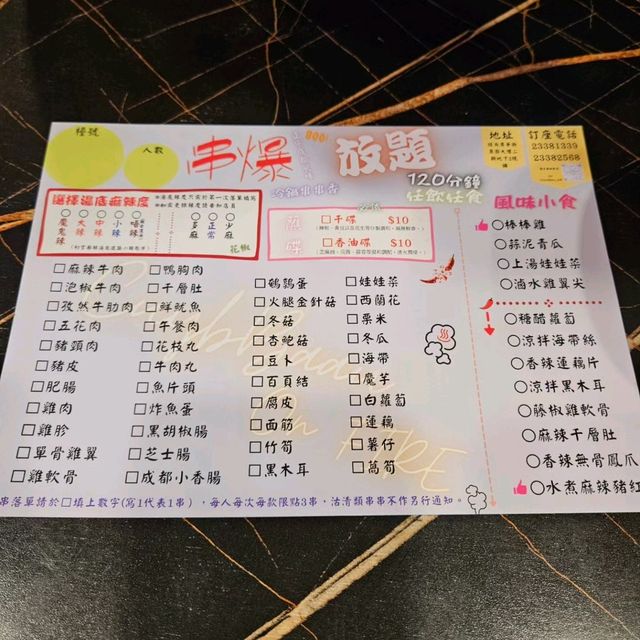 檯號
人數
串爆
放題
120分鐘
任飲任食
冷鍋串串香
地址
訂座電話
23381339
23382568
選擇湯底麻辣度
魔鬼辣
大辣
中辣
小辣
唔辣
多麻
正常
少麻
花椒
必選
蘸碟
□干碟 $10
□香油碟 $10
風味小食
○棒棒雞
○蒜泥青瓜
○上湯娃娃菜
○滷水雞翼尖
○糖醋蘿蔔
○涼拌海帶絲
○香辣蓮藕片
○涼拌黑木耳
○藤椒雞軟骨
○麻辣千層肚
○香辣無骨鳳爪
○水煮麻辣豬紅
□麻辣牛肉
□泡椒牛肉
□孜然牛肋肉
□五花肉
□豬頸肉
□豬皮
□肥腸
□雞肉
□雞胗
□單骨雞翼
□雞軟骨
□鴨胸肉
□千層肚
□鮮魷魚
□午餐肉
□花枝丸
□牛肉丸
□魚片頭
□炸魚蛋
□黑胡椒腸
□芝士腸
□成都小香腸
□鵪鶉蛋
□火腿金針菇
□冬菇
□杏鮑菇
□豆卜
□百頁結
□腐皮
□面筋
□竹筍
□黑木耳
□娃娃菜
□西蘭花
□粟米
□冬瓜
□海帶
□魔芋
□白蘿蔔
□蓮藕
□薯仔
□萵筍
串落單請於□填上數字(寫1代表1串），每人每次每款限點3串，沽清類串串不作另行通知。